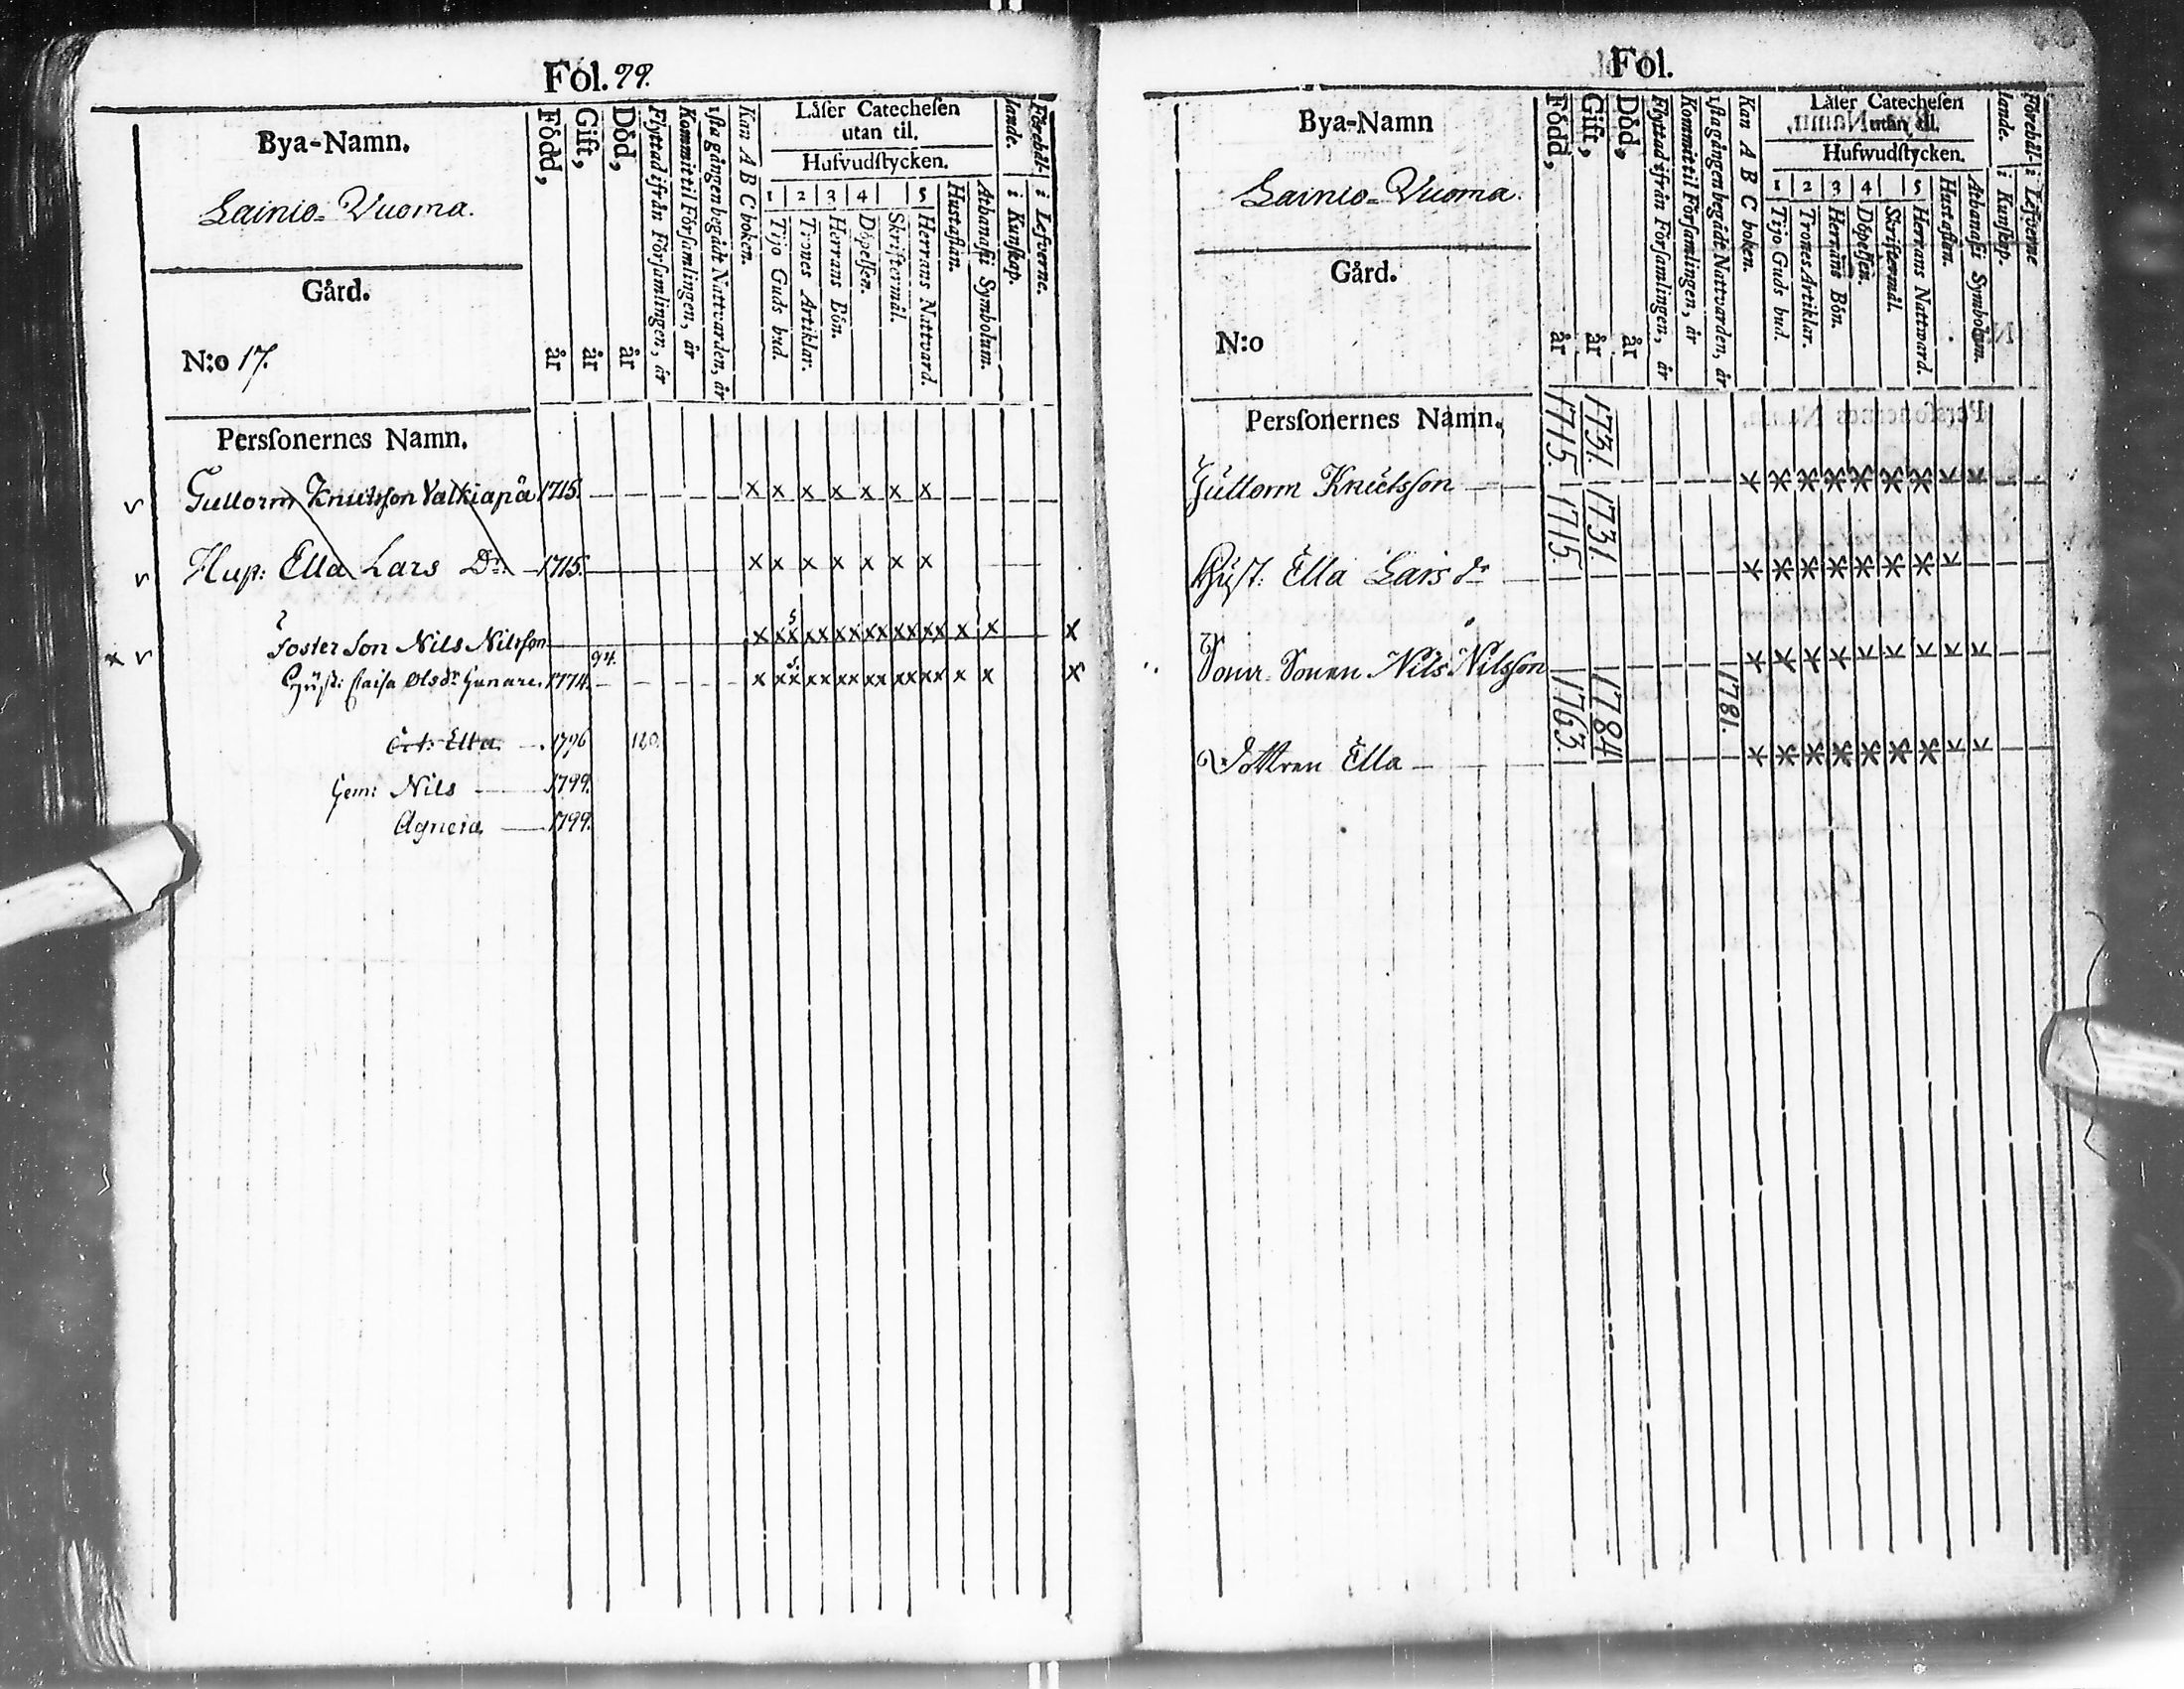 Fol. 99.
Bya-Namn.
Lainio-Vuoma.
Gård.
N:o 17.
Född, år
Gift, år
Död, år
Flyttad ifrån Församlingen, år
Kommit til Församlingen, år
1sta gången begådt Nattvarden, år
Kan A B C boken.
Låser Catecheſen
utan til.
Hufvudſtycken.
1 2 3 4 5
Tijo Guds bud.
Trones Artiklar.
Herrans Bön.
Döpelſen.
Skriftermål.
Herrans Nattvard.
Hustaflan.
Athanaſii Symbolum.
Förehållande.
i Kunſkap.
i Lefverne.
Persſonernes Namn.
Guttorm Knutsson Valkiapä 1715. x x x x x x x
Hust: Ella Lars Dr. 1715. x x x x x x x
Foster Son Nils Nilsson x xx xx xx xx xx xx x x x
Hust: Caisa Olsdr Hunare. 1774. 94. x xx xx xx xx xx xx x x x
Ella 1796
Gem: Nils 1799.
Agneta 1799.
Fol.
Bya-Namn
Lainio-Vuoma.
Gård.
N:o
Född, år
Gift, år
Död, år
Flyttad ifrån Församlingen, år
Kommit til Församlingen, år
1sta gången begådt Nattvarden, år
Kan A B C boken.
Låſer Catecheſen
utan til.
Hufwudſtycken.
1 2 3 4 5
Tijo Guds bud.
Trones Artiklar.
Herrans Bön.
Döpelſen.
Skriftermål.
Herrans Nattward.
Hustaflan.
Athanaſii Symbolum.
Förehållande.
i Kunſkap.
i Lefverne
Persſonernes Namn.
Guttorm Knutsson 1715. 1731.
Hust: Ella Lars dr 1715. 1731
Sonen Nils Nilsson 1781.
Dottren Ella 1763. 1784